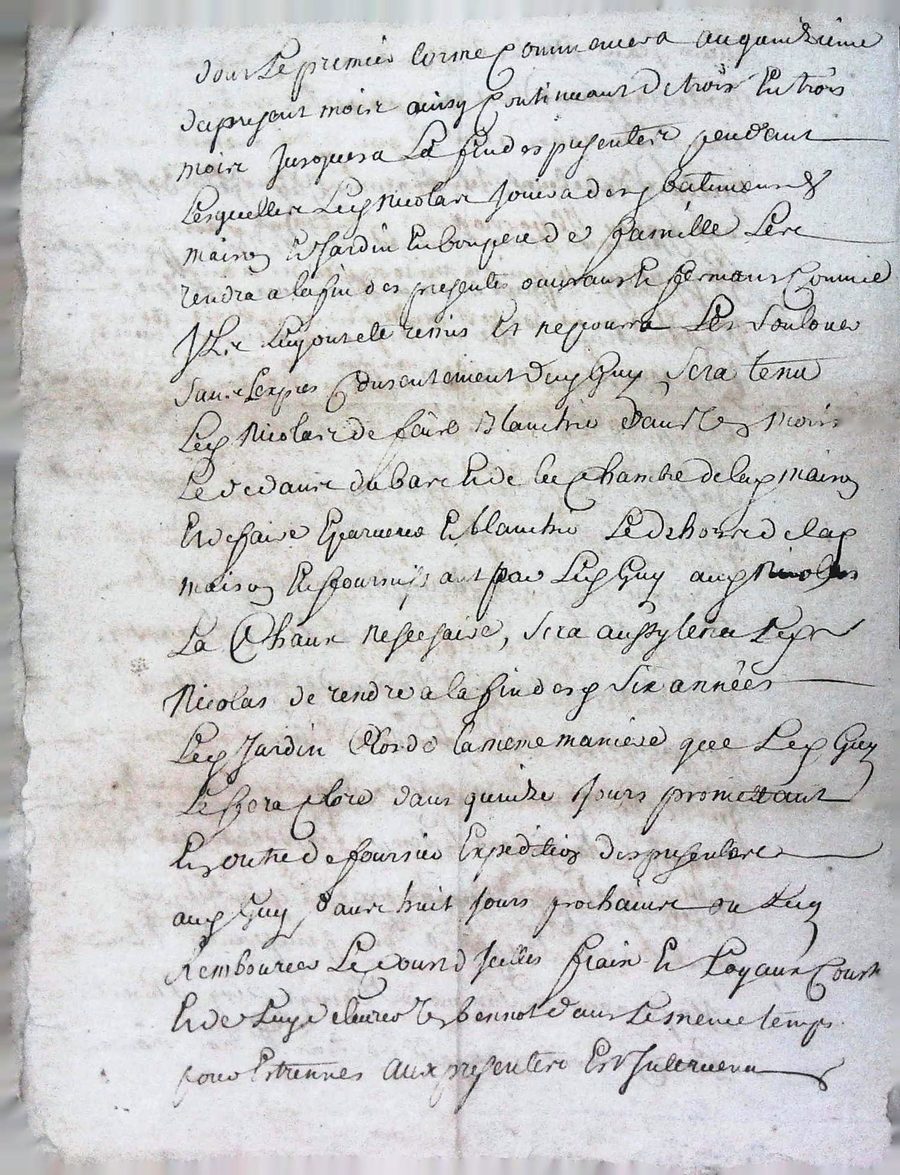 dont le premier terme commencera au quinzieme
du present mois ainsy continuant de trois en trois
mois jusques a la fin des presentes pendant
lesquelles led Nicolas jouira desd batiments
maison et jardin en bon pere de famille les
rendra a la fin des presentes ouvrans et fermans comme
ils luy ont ete remis et ne pourra les soulouer
sans l'expres consentement dud Guy, sera tenu
led Nicolas de faire blanchir dans mois
le dedans du bas et de la chambre de lad maison
et de faire et blanchir le dehors de lad
maison en fournissant par led Guy aud Nicolas
la chaux nessesaire, sera aussy tenu led
Nicolas de rendre a la fin desd six années
led jardin clos de la meme maniere que led Guy
le fera clore dans quinze jours promettant
en outre de fournir expedition des presentes
aud Guy dans huit jours prochains ou luy
rembourser le cout d'icelles frais et loyaux cousts
et de luy delivrer dans le meme temps
pour estrennes aux presentes est intervenu